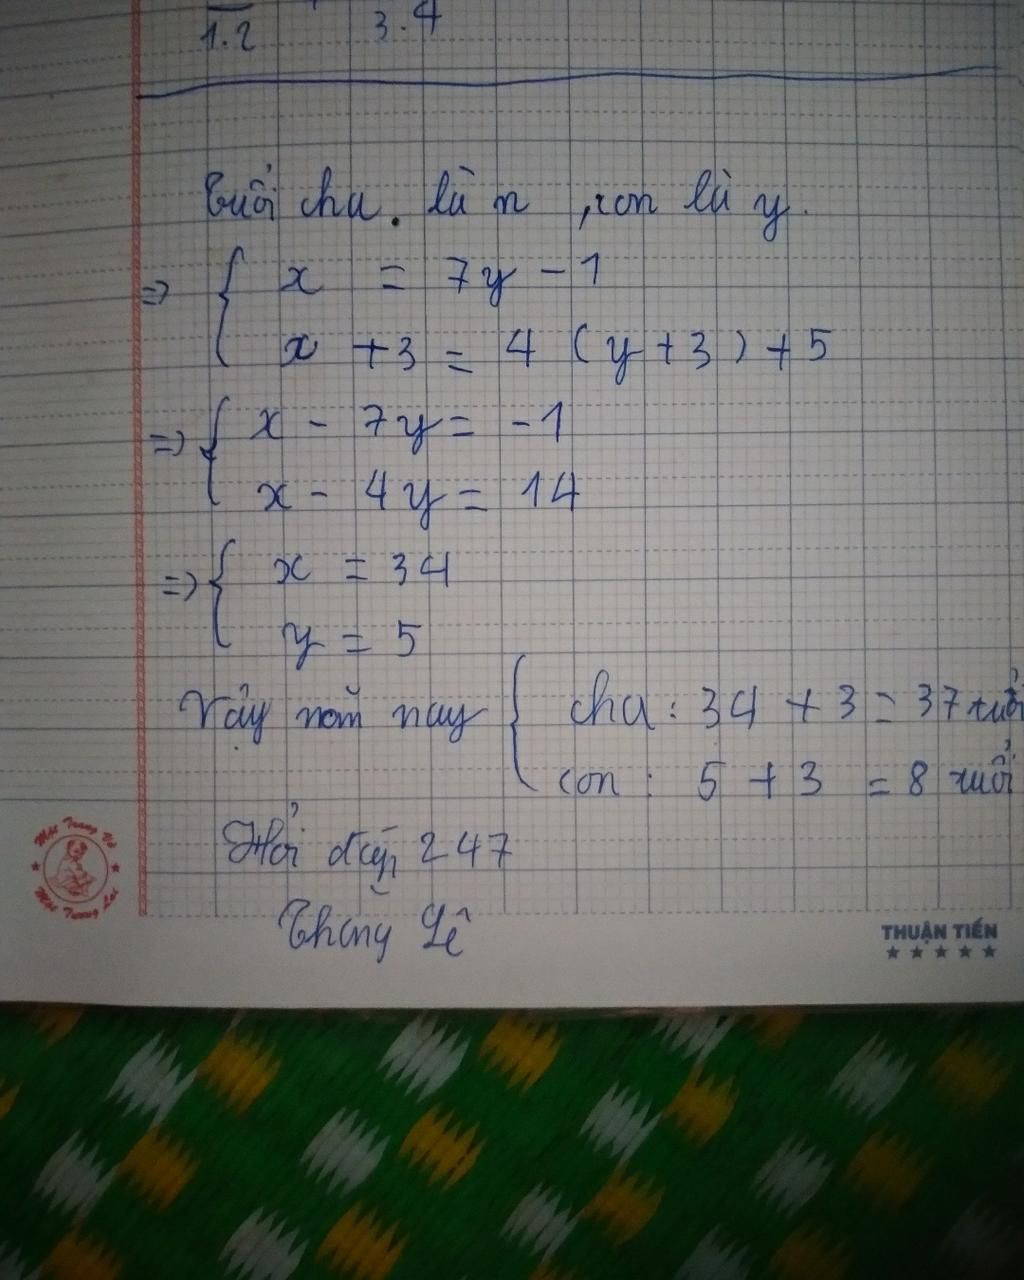 1.2 3.4
Tuổi cha. là x, con là y.
=> { x = 7y - 1
x + 3 = 4 (y + 3) + 5
=> { x - 7y = -1
x - 4y = 14
=> { x = 34
y = 5
Vậy năm nay { cha : 34 + 3 = 37 tuổi
con : 5 + 3 = 8 tuổi
Hỏi đáp 247
Thắng Lê
Một Trang Vở
Một Tương Lai
THUẬN TIẾN